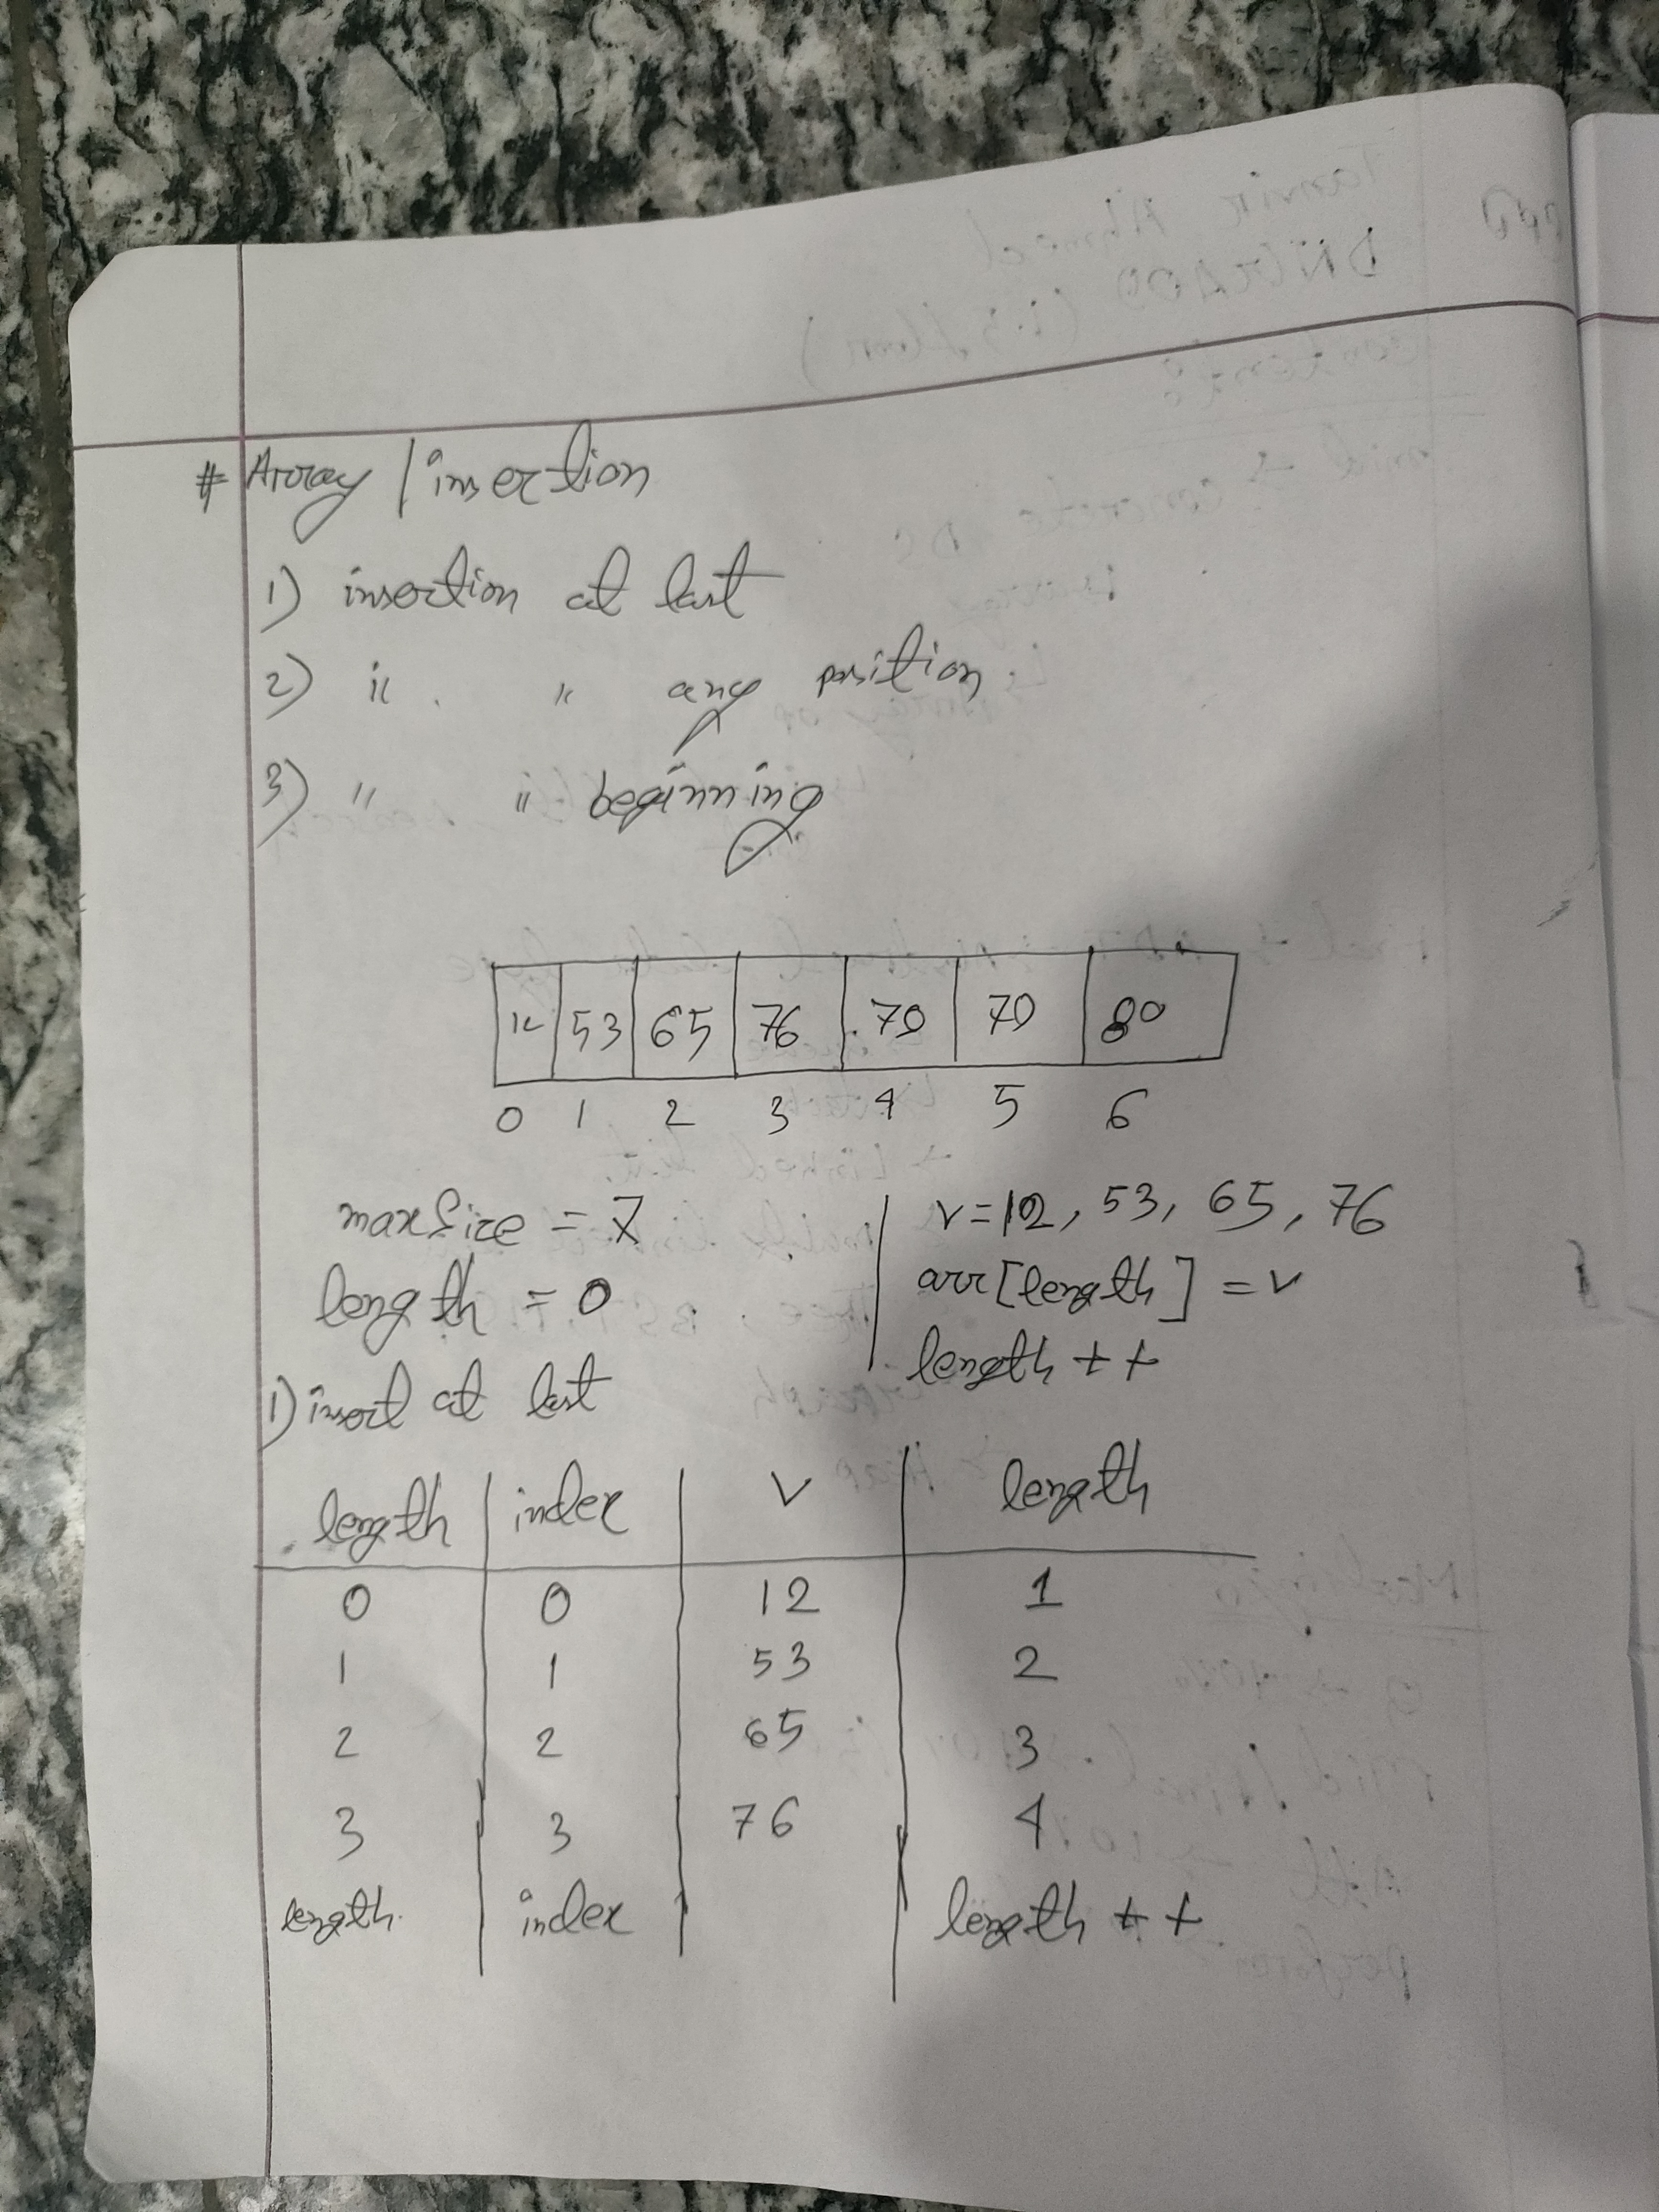 # Array / insertion
1) insertion at last
2) " " any position
3) " " beginning
12 53 65 76 79 79 80
0 1 2 3 4 5 6
maxSize = 7
length = 0
v=12, 53, 65, 76
arr[length] = v
length ++
1) insert at last
length index v length
0 0 12 1
1 1 53 2
2 2 65 3
3 3 76 4
length index length ++